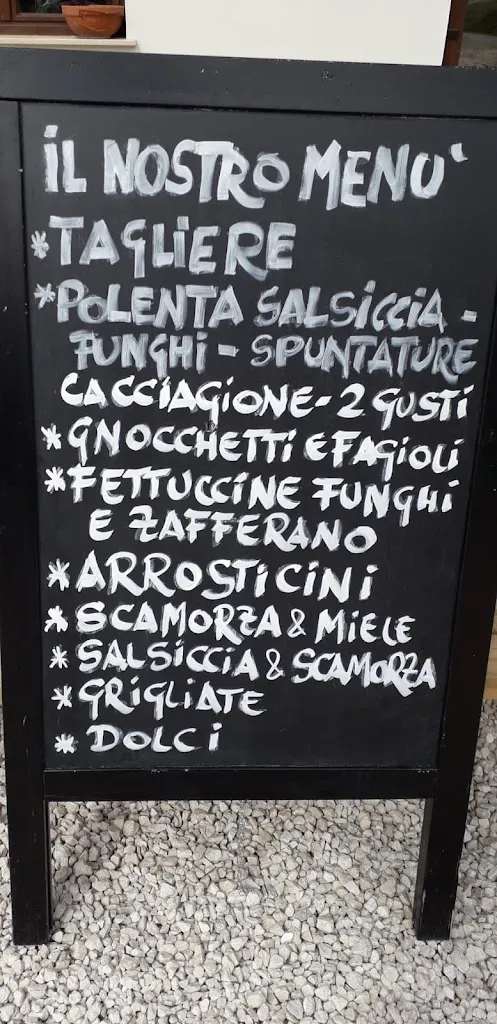 iL NOSTRO MENU`
* TAGLiERE
* POLENTA SALSiCCiA -
FUNGHi - SPUNTATURE
CACCiAGiONE - 2 GUSTi
* GNOCCHETTi E FAGiOLi
* FETTUCCiNE FUNGHi
E ZAFFERANO
* ARROSTiCiNi
* SCAMORZA & MiELE
* SALSiCCiA & SCAMORZA
* GRiGLiATE
* DOLCi